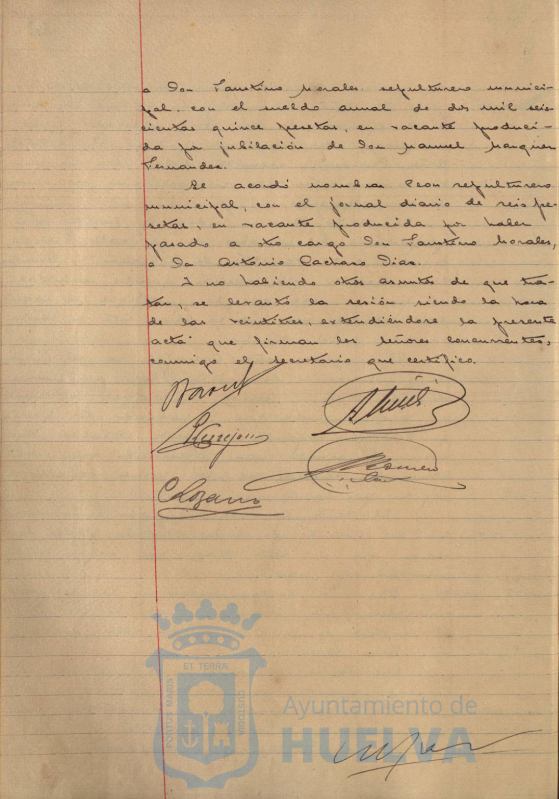 a Don Faustino Morales, sepulturero munici-
pal, con el sueldo anual de dos mil seis-
cientas quince pesetas, en vacante produci-
da por jubilación de Don Manuel Márquez
Fernández.
Se acordó nombrar Peon sepulturero
municipal, con el jornal diario de seis pe-
setas, en vacante producida por haber
pasado a otro cargo Don Faustino Morales,
a Dn Antonio Cacharo Dias.
Y no habiendo otros asuntos de que tra-
tar, se levantó la sesión siendo la hora
de las veintitres, extendiéndose la presente
acta que firman los señores concurrentes,
conmigo el secretario que certifico.
CLozano
Romero
ET TERRÆ
PORTUS MARIS
CUSTODIA
Ayuntamiento de
HUELVA